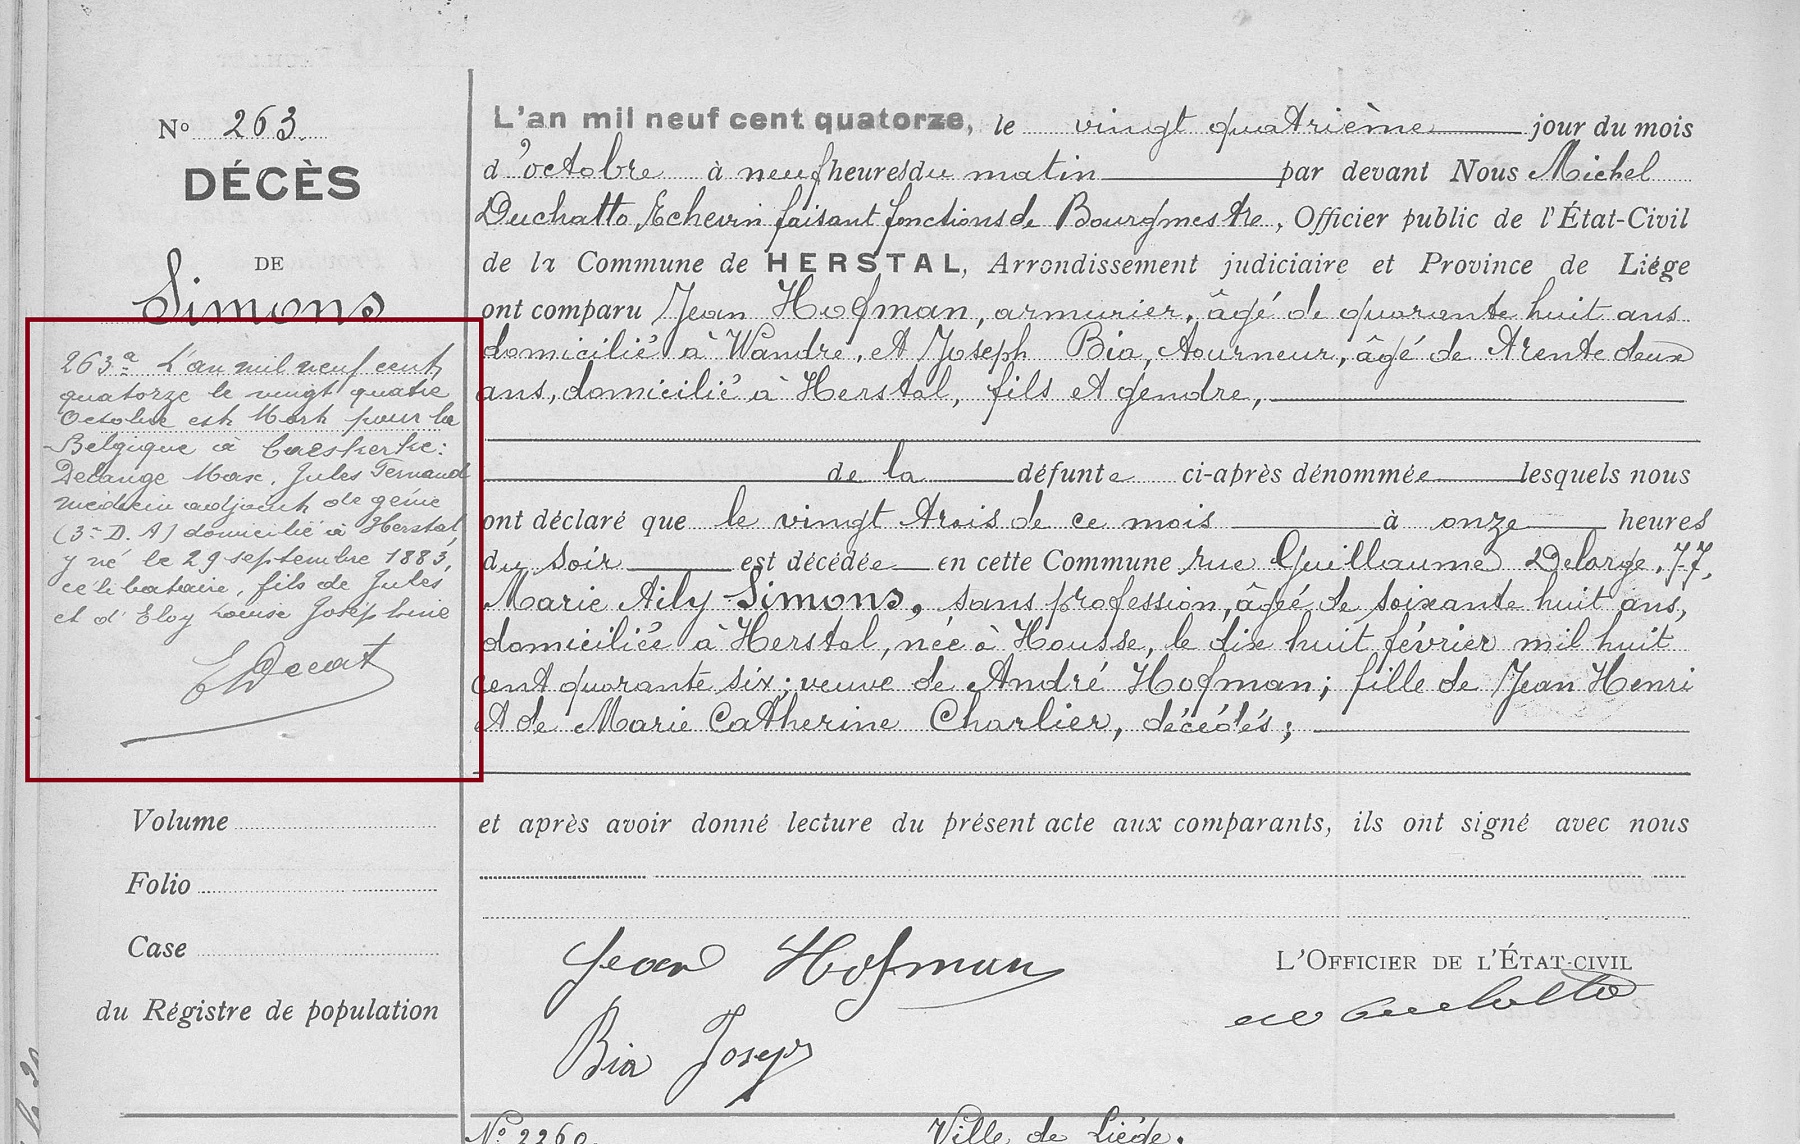 Nº 263.
DÉCÈS
DE
Simons
263ª L'an mil neuf cent
quatorze le vingt quatre
Octobre est Mort pour la
Belgique à Caeskerke:
Delange Max, Jules Fernand
médecin adjoint de génie
(3e D. A) domicilié à Herstal,
y né le 29 septembre 1883,
célibataire, fils de Jules
et d'Eloy Louise Joséphine
Volume
Folio
Case
du Régistre de population
L'an mil neuf cent quatorze, le vingt quatrième jour du mois
d'octobre à neuf heures du matin par devant Nous Michel
Duchatto, Echevin faisant fonctions de Bourgmestre, Officier public de l'État-Civil
de la Commune de HERSTAL, Arrondissement judiciaire et Province de Liége
ont comparu Jean Hofman, armurier, âgé de quarante huit ans
domicilié à Wandre, et Joseph Bia, tourneur, âgé de trente deux
ans, domicilié à Herstal, fils et gendre,
de la défunte ci-après dénommée lesquels nous
ont déclaré que le vingt trois de ce mois à onze heures
du soir est décédée en cette Commune rue Guillaume Delarge, 77,
Marie Aily Simons, sans profession, âgée de soixante huit ans,
domiciliée à Herstal, née à Housse, le dix huit février mil huit
cent quarante six; veuve de André Hofman; fille de Jean Henri
et de Marie Catherine Charlier, décédés;
et après avoir donné lecture du présent acte aux comparants, ils ont signé avec nous
Jean Hofman
L'OFFICIER DE L'ÉTAT-CIVIL
Bia Joseph
Nº 2260.
Ville de Liége.